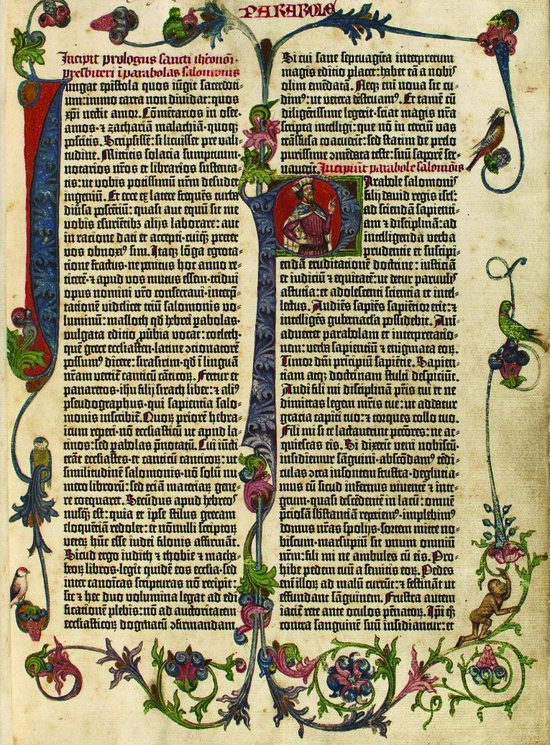 PARABOLE
Incipit prologus sancti iheronimi
presbiteri i parabolas salomonis
Iungat epistola quos iungit sacerdoti-
um: immo carta non dividat: quos
xpi nectit amor. Cōmētarios in osee-
amos- ⁊ zachariā malachiā- quoq̄
poscitis. Scripsissē: si licuisset p̄ vali-
tudine. Mittitis solacia sumptuum-
notarios nr̄os et librarios sustenta-
tis: ut vobis potissimū nr̄m desudet
ingeniū. Et ecce ex latere frequēs turba
diūsa poscētiū: quasi aut equū sit me
vobis esuriētibz alijs laborare: aut
in racione dati et accepti- cuiq̄ preter
vos obnoxiꝰ sim. Itaq̄ lōga egrota-
tione fractus- ne penitus hoc anno re-
ticerē- ⁊ apud vos mutus essem- tridui
opus nomini vr̄o consecraui- interp̄-
tationē videlicet triū salomonis vo-
luminū: masloth qd̄ hebrei pabolas-
vulgata editio ꝓūbia vocat: coeleth-
que grece ecclīasten- latine ↄcionatorē
possumꝰ dicere: sirasirim- qd̄ ī linguā
nr̄am vertit canticū cāticoꝝ. Fertur et
panaretos- ihū filij sirach liber: ⁊ aliꝰ
pseudographus- qui sapientia salo-
monis inscribit. Quoꝝ priorē hebra-
icum reperi- nō ecclīasticū ut apud la-
tinos: sed pabolas p̄notatū. Cui iūcti
erāt ecclīastes- et canticū canticoꝝ: ut
similitudinē salomonis- nō solū nu-
mero librorū: sed eciā materiaꝝ gene-
re coequaret. Secūdus apud hebreos
nusq̄ est: quia et ipse stilus grecam
eloquētiā redolet: et nōnulli scriptoꝝ
veterū hūc esse iudei filonis affirmāt.
Sicud ergo iudith ⁊ thobie ⁊ macha-
beoꝝ libros- legit quidē eos ecclīa- sed
inter canoicas scripturas nō recipit:
sic ⁊ hec duo volumina legat ad edi-
ficationē plebis: nō ad auctoritatem
ecclīasticoꝝ dogmatū ↄfirmandam.
Si cui sane septuaginta interpretum
magis editio placet: habet eā a nobis
olim emēdatā. Neq̄ eni noua sic cu-
dimꝰ: ut vetera destruamꝰ. Et tamē cū
diligētissime legerit- sciat magis nr̄a
scripta intelligi: que nō in terciū vas
trāsfusa coacuerīt: sed statim de prelo
purissime ↄmēdata teste: suū saporē ser-
vauerit.
Incipiūt parabole salomonis
Parabole salomonis
filij dauid regis isrl̄:
ad sciendā sapienti-
am ⁊ disciplinā: ad
intelligendā verba
prudentie et suscipi-
endā eruditationē doctrine: iusticiā
et iudiciū ⁊ equitatē: ut detur paruulis
astutia: et adolescenti scientia et intel-
lectus. Audiēs sapiēs sapiētior erit: ⁊
intelligēs gubernacla possidebit. Ani-
aduertet parabolam et interpretatio-
nem: verba sapientiū ⁊ enigmata eoꝝ.
Timor dn̄i principiū sapiētie. Sapien-
tiam atq̄ doctrinam stulti despiciūt.
Audi fili mi disciplinā pr̄is tui et ne
dimittas legem mr̄is tue: ut addatur
gracia capiti tuo: ⁊ torques collo tuo.
Fili mi si te lactauerint pctōres: ne ac-
quiescas eis. Si dixerīt veni nobiscū-
insidiemur sāguini- abscōdamꝰ tēdi-
culas ↄtra insontem frustra- deglutia-
mus eū sicud infernus viuentē ⁊ inte-
grum- quasi descēdentē in lacū: omnē
p̄ciosā sb̄stantiā reperiemꝰ- implebimꝰ
domus nr̄as spolijs- sortem mitte no-
biscum- marsupiū sit unum omniū
nr̄m: fili mi ne ambules cū eis. Pro-
hibe pedem tuū a semitis eoꝝ. Pedes
eni illoꝝ ad malū currūt: ⁊ festināt ut
effundant sāguinem. Frustra autem
iacit̄ rete ante oculos pēnatoꝝ. Ipi q̄
contra sanguinē suū insidiantur: et